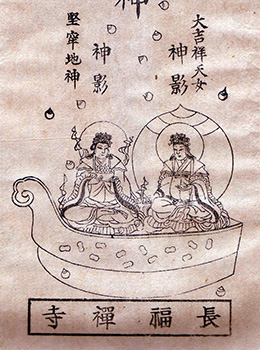 神
大吉祥天女
神影
堅牢地神
神影
長福禪寺